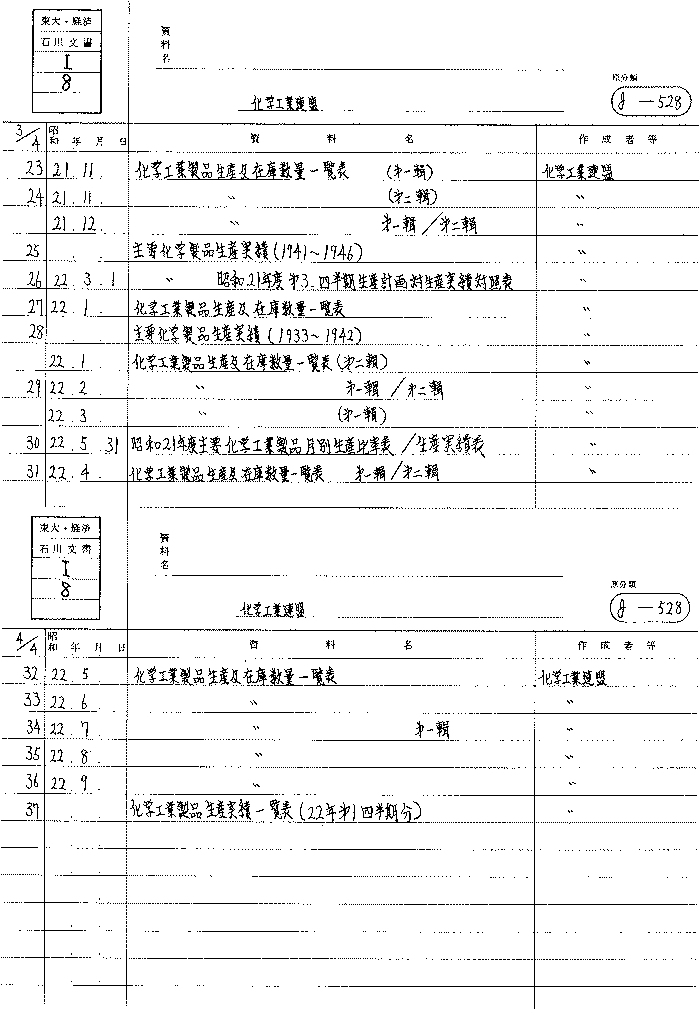 東大・経済
石川文書
I
8
資料名
化学工業連盟
原分類
8 — 528
3/4 昭和 年 月 日 資料名 作成者等
23 21. 11. 化学工業製品生産及在庫数量一覧表 (第一輯) 化学工業連盟
24 21. 11. 〃 (第二輯) 〃
21. 12. 〃 第一輯/第二輯 〃
25 主要化学製品生産実績(1941~1946) 〃
26 22. 3. 1 〃 昭和21年度第3.四半期生産計画対生産実績対照表 〃
27 22. 1. 化学工業製品生産及在庫数量一覧表 〃
28 主要化学製品生産実績(1933~1942) 〃
22. 1 化学工業製品生産及在庫数量一覧表(第二輯) 〃
29 22. 2 〃 第一輯/第二輯 〃
22. 3 〃 (第一輯) 〃
30 22. 5 31 昭和21年度主要化学工業製品月別生産比率表/生産実績表 〃
31 22. 4. 化学工業製品生産及在庫数量一覧表 第一輯/第二輯 〃
東大・経済
石川文書
I
8
資料名
化学工業連盟
原分類
8 — 528
4/4 昭和 年 月 日 資料名 作成者等
32 22. 5 化学工業製品生産及在庫数量一覧表 化学工業連盟
33 22. 6 〃 〃
34 22. 7 〃 第一輯 〃
35 22. 8 〃 〃
36 22. 9 〃 〃
37 化学工業製品生産実績一覧表(22年第1四半期分) 〃